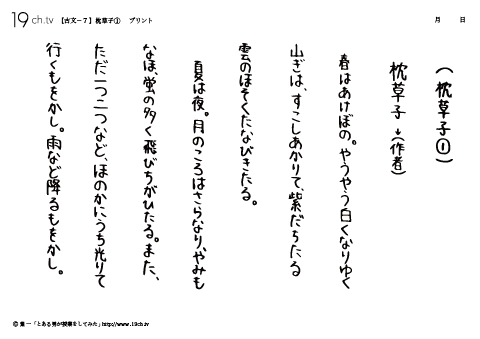 19ch.tv 【古文-7】枕草子① プリント 月 日
(枕草子①)
枕草子 → (作者)
春はあけぼの。やうやう白くなりゆく
山ぎは、すこしあかりて、紫だちたる
雲のほそくたなびきたる。
夏は夜。月のころはさらなり、やみも
なほ、蛍の多く飛びちがひたる。また、
ただ一つ二つなど、ほのかにうち光りて
行くもをかし。雨など降るもをかし。
© 葉一「とある男が授業をしてみた」http://www.19ch.tv